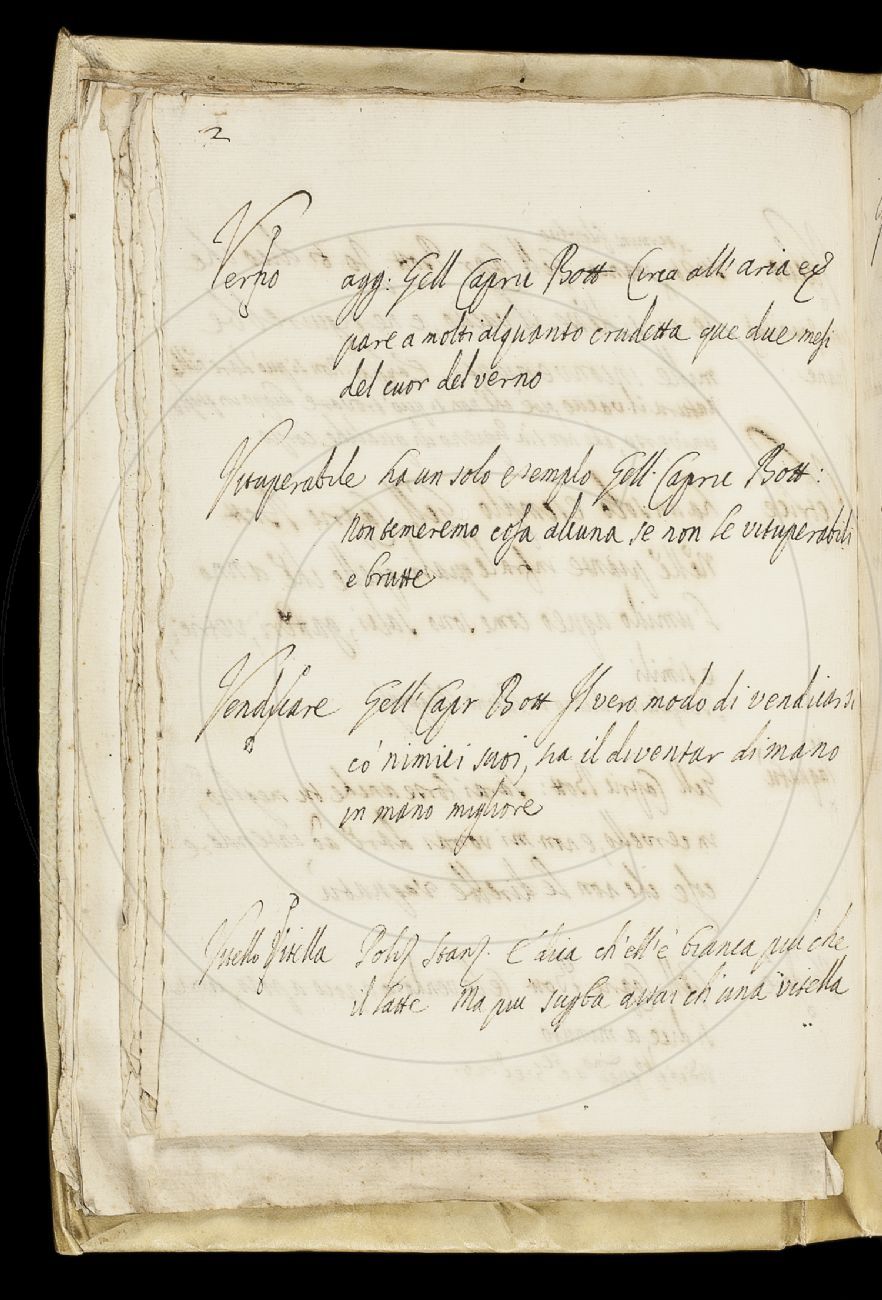 2
Verno agg: Gell Capric Bott Circa all' aria egl'
pare a molti alquanto crudetta que due mesi
del cuor del verno
Vituperabile ha un solo esemplo Gell. Capric Bott:
Non temeremo cosa alcuna se non le vituperabili
e brutte
Vendicare Gell' Capr Bott Il vero modo di vendicarsi
co' nimici suoi, sia il diventar di mano
in mano migliore
Vitello Vitella Poliz Stanz. E' dica ch'ell'è bianca più che
il latte Ma più superba assai ch'una vitella